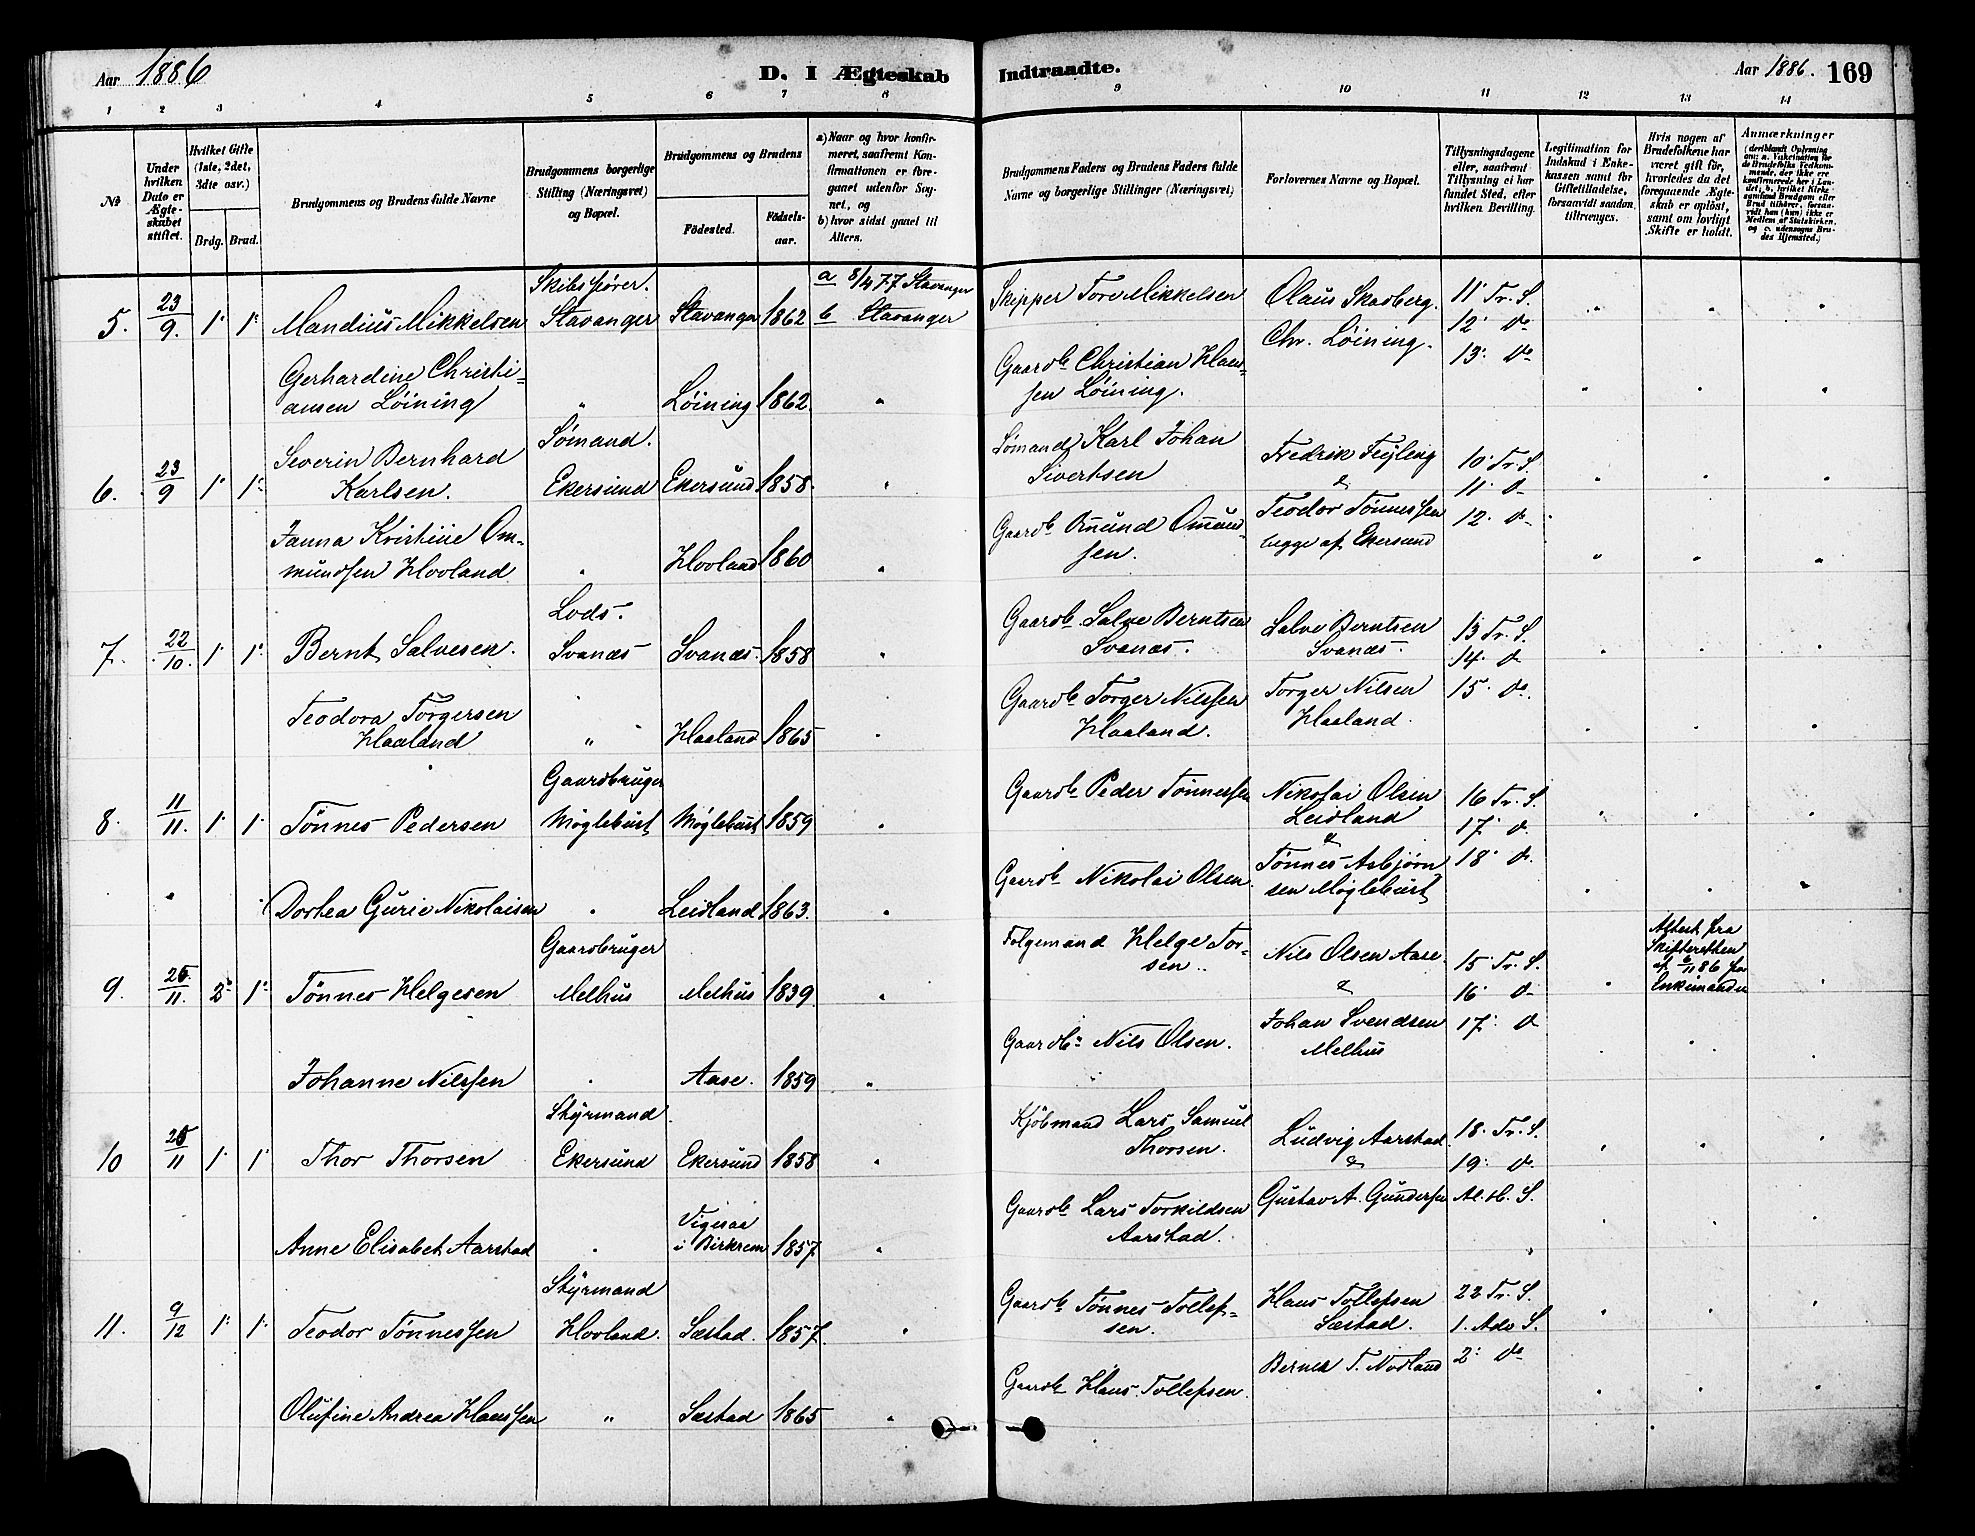 Aar 1886
D. I Ægteskab Indtraadte.
Aar 1886. 169
1 2 3 4 5 6 7 8 9 10 11 12 13 14
No
Under hvilken Dato er Ægteskabet stiftet.
Hvilket Gifte (1ste, 2det, 3die osv.)
Brdg. Brud.
Brudgommens og Brudens fulde Navne
Brudgommens borgerlige Stilling (Næringsvei) og Bopæl.
Brudgommens og Brudens
Födested.
Födselsaar.
a) Naar og hvor konfirmeret, saafremt Konfirmationen er foregaaet udenfor Sognet, og
b) hvor sidst gaaet til Alters.
Brudgommens Faders og Brudens Faders fulde Navne og borgerlige Stillinger (Næringsvei)
Forlovernes Navne og Bopæl.
Tillysningsdagene eller, saafremt Tillysning ei har fundet Sted, efter hvilken Bevilling.
Legitimation for Indskud i Enkekassen samt for Giftetilladelse, forsaavidt saadan tiltrænges.
Hvis nogen af Brudefolkene har været gift för, hvorledes da det foregaaende Ægteskab er oplöst, samt om lovligt Skifte er holdt.
Anmærkninger
5. 23/9. 1. 1. Mandius Mikkelsen Skibsfører. Stavanger Stavanger 1862 a 8/4 77 Stavanger b Stavanger
Skipper Tore Mikkelsen Olaus Skadberg. Chr. Löining. 11. Tr. S. 12. do 13. do
Gerhardine Christiansen Löining " Löining 1862 "
Gaardb. Christian Hanssen Löining.
6. 23/9 1. 1. Severin Bernhard Karlsen. Sømand. Ekersund Ekersund 1858. "
Sømand Karl Johan Sivertsen Fredrik Feyling & Teodor Tønnessen begge af Ekersund 10. Tr. S. 11. do 12. do
Janna Kristine Ommundsen Hovland " Hovland 1860 "
Gaardb. Omund Omundsen.
7. 22/10. 1. 1. Bernt Salvesen. Lods. Svanæs Svanæs. 1858 "
Gaardb. Salve Berntsen Svanæs. Salve Berntsen Svanæs. 13 Tr. S. 14. do 15. do
Teodora Torgersen Haaland " Haaland 1865 "
Gaardb. Torger Nilssen Haaland. Torger Nilsen Haaland.
8. 11/11. 1. 1. Tønnes Pedersen Gaardbruger Møglebust Møglebust 1859 "
Gaardb. Peder Tønnessen Nikolai Olsen Leidland & Tønnes Asbjørnsen Møglebust 16 Tr. S. 17. do 18. do
Dortea Gurie Nikolaisen " Leidland 1863. "
Gaardb. Nikolai Olsen.
9. 25/11. 2. 1. Tønnes Helgesen Gaardbruger Melhus Melhus 1839. "
Folgemand Helge Torsen. Nils Olsen Aase. & Johan Svendsen Melhus 15. Tr. S. 16. do 17. do
Attest fra Skifteretten af 6/11 86 for Enkemanden
Johanne Nilssen " Aase. 1859 "
Gaardb. Nils Olsen.
10 25/11 1. 1. Thor Thorsen Styrmand Ekersund Ekersund 1858 "
Kjöbmand Lars Samuel Thorsen. Ludvig Aarstad & Gustav A. Gundersen 18. Tr. S. 19. do Al. H. S.
Anne Elisabet Aarstad " Vigesaa i Birkrem 1857. "
Gaardb. Lars Torkildsen Aarstad.
11. 9/12 1. 1. Teodor Tønnessen Styrmand Hovland. Sæstad. 1857. "
Gaardb. Tønnes Tollefsen. Hans Tollefsen Sæstad. Berner T. Nodland 22 Tr. S. 1. Adv S. 2. do
Olufine Andrea Hanssen " Sæstad 1865 "
Gaardb. Hans Tollefsen.